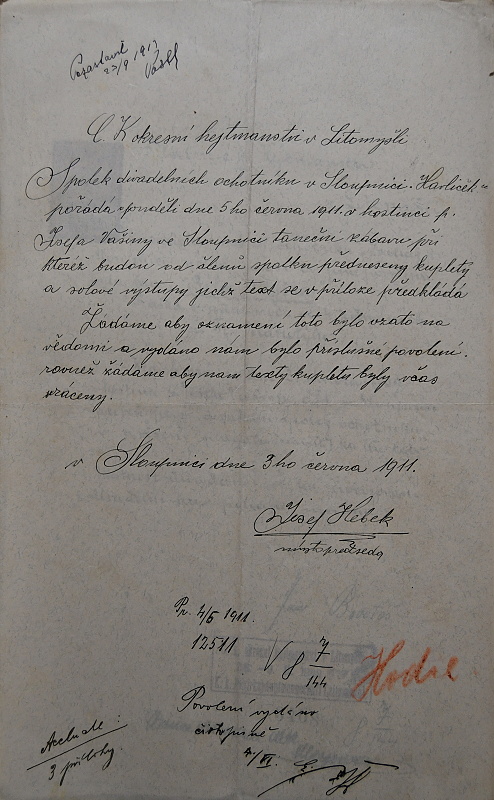 1911
C. K okresní hejtmanství v Litomyšli
Spolek divadelních ochotníku v Sloupnici - Havlíček -
pořádá v pondělí dne 5 ho června 1911. v hostinci p.
Josefa Vašiny ve Sloupnici taneční zábavu při
kteréž budou od členů spolku předneseny kuplety
a solové výstupy jichž text se v příloze předkládá
Žádáme aby oznamení toto bylo vzato na
vědomí a vydáno nám bylo příslušné povolení.
rovněž žádáme aby nam texty kupletu byly včas
vráceny.
v Sloupnici dne 3 ho června 1911.
Josef Hebek
místopředseda
Pr. 4/6 1911.
12511
V 8 7/144
Povolení vydáno
čistopisně
4/VI.
3 přílohy.